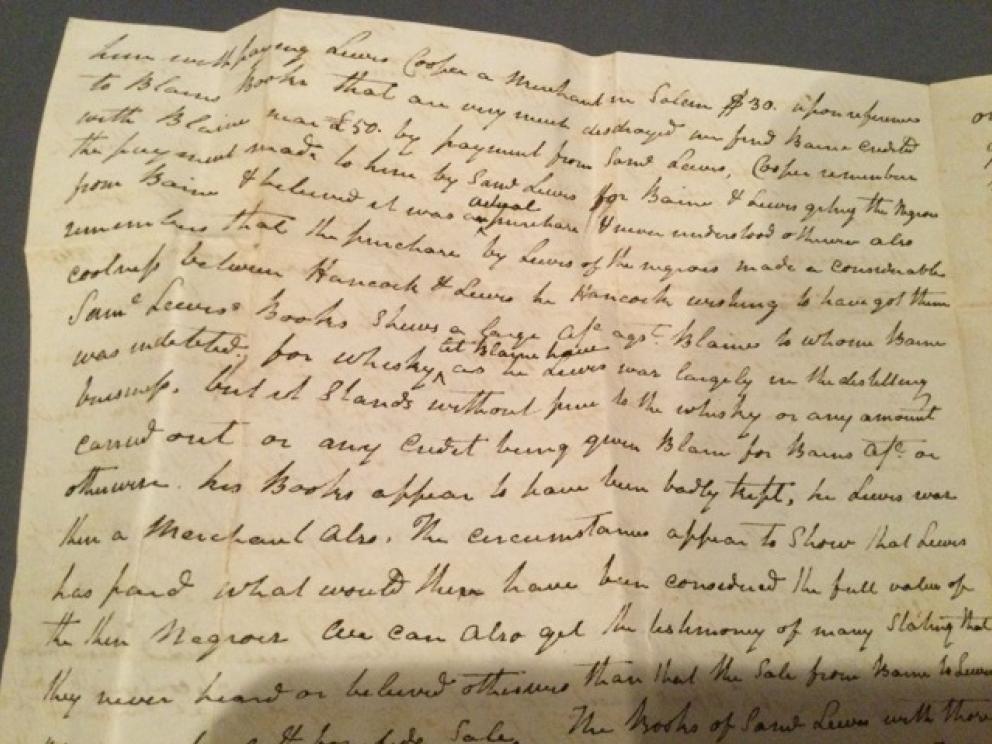 him with paying Lewis Cooper a Merchant in Salem $30. upon reference
to Blains Books that are very much destroyed we find Baine credited
with Blaine near £50. by payment from Saml Lewis, Cooper remembers
the payment made to him by Saml Lewis for Baine & Lewis geting the Negroes
from Baine & believed it was an actual purchase & never understood otherwise also
remembers that the purchase by Lewis of the negroes made a considerable
coolness between Hancock & Lewis he Hancock wishing to have got them
Saml Lewis's Books Shews a large A/c agt. Blaines to whome Baine
was indebted, for whisky let Blaine have as he Lewis was largely in the distilling
business, but it Stands without price to the whisky or any amount
carried out or any Credit being given Blain for Bains A/c. or
otherwise. his Books appear to have been badly kept, he Lewis was
then a Merchant Also. The circumstances appear to Show that Lewis
has paid what would then have been considered the full value of
the then Negroes We can Also get the testimony of many Stating that
they never heard or believed otherwise than that the Sale from Baine to Lewis
Sale The Books of Saml Lewis with those